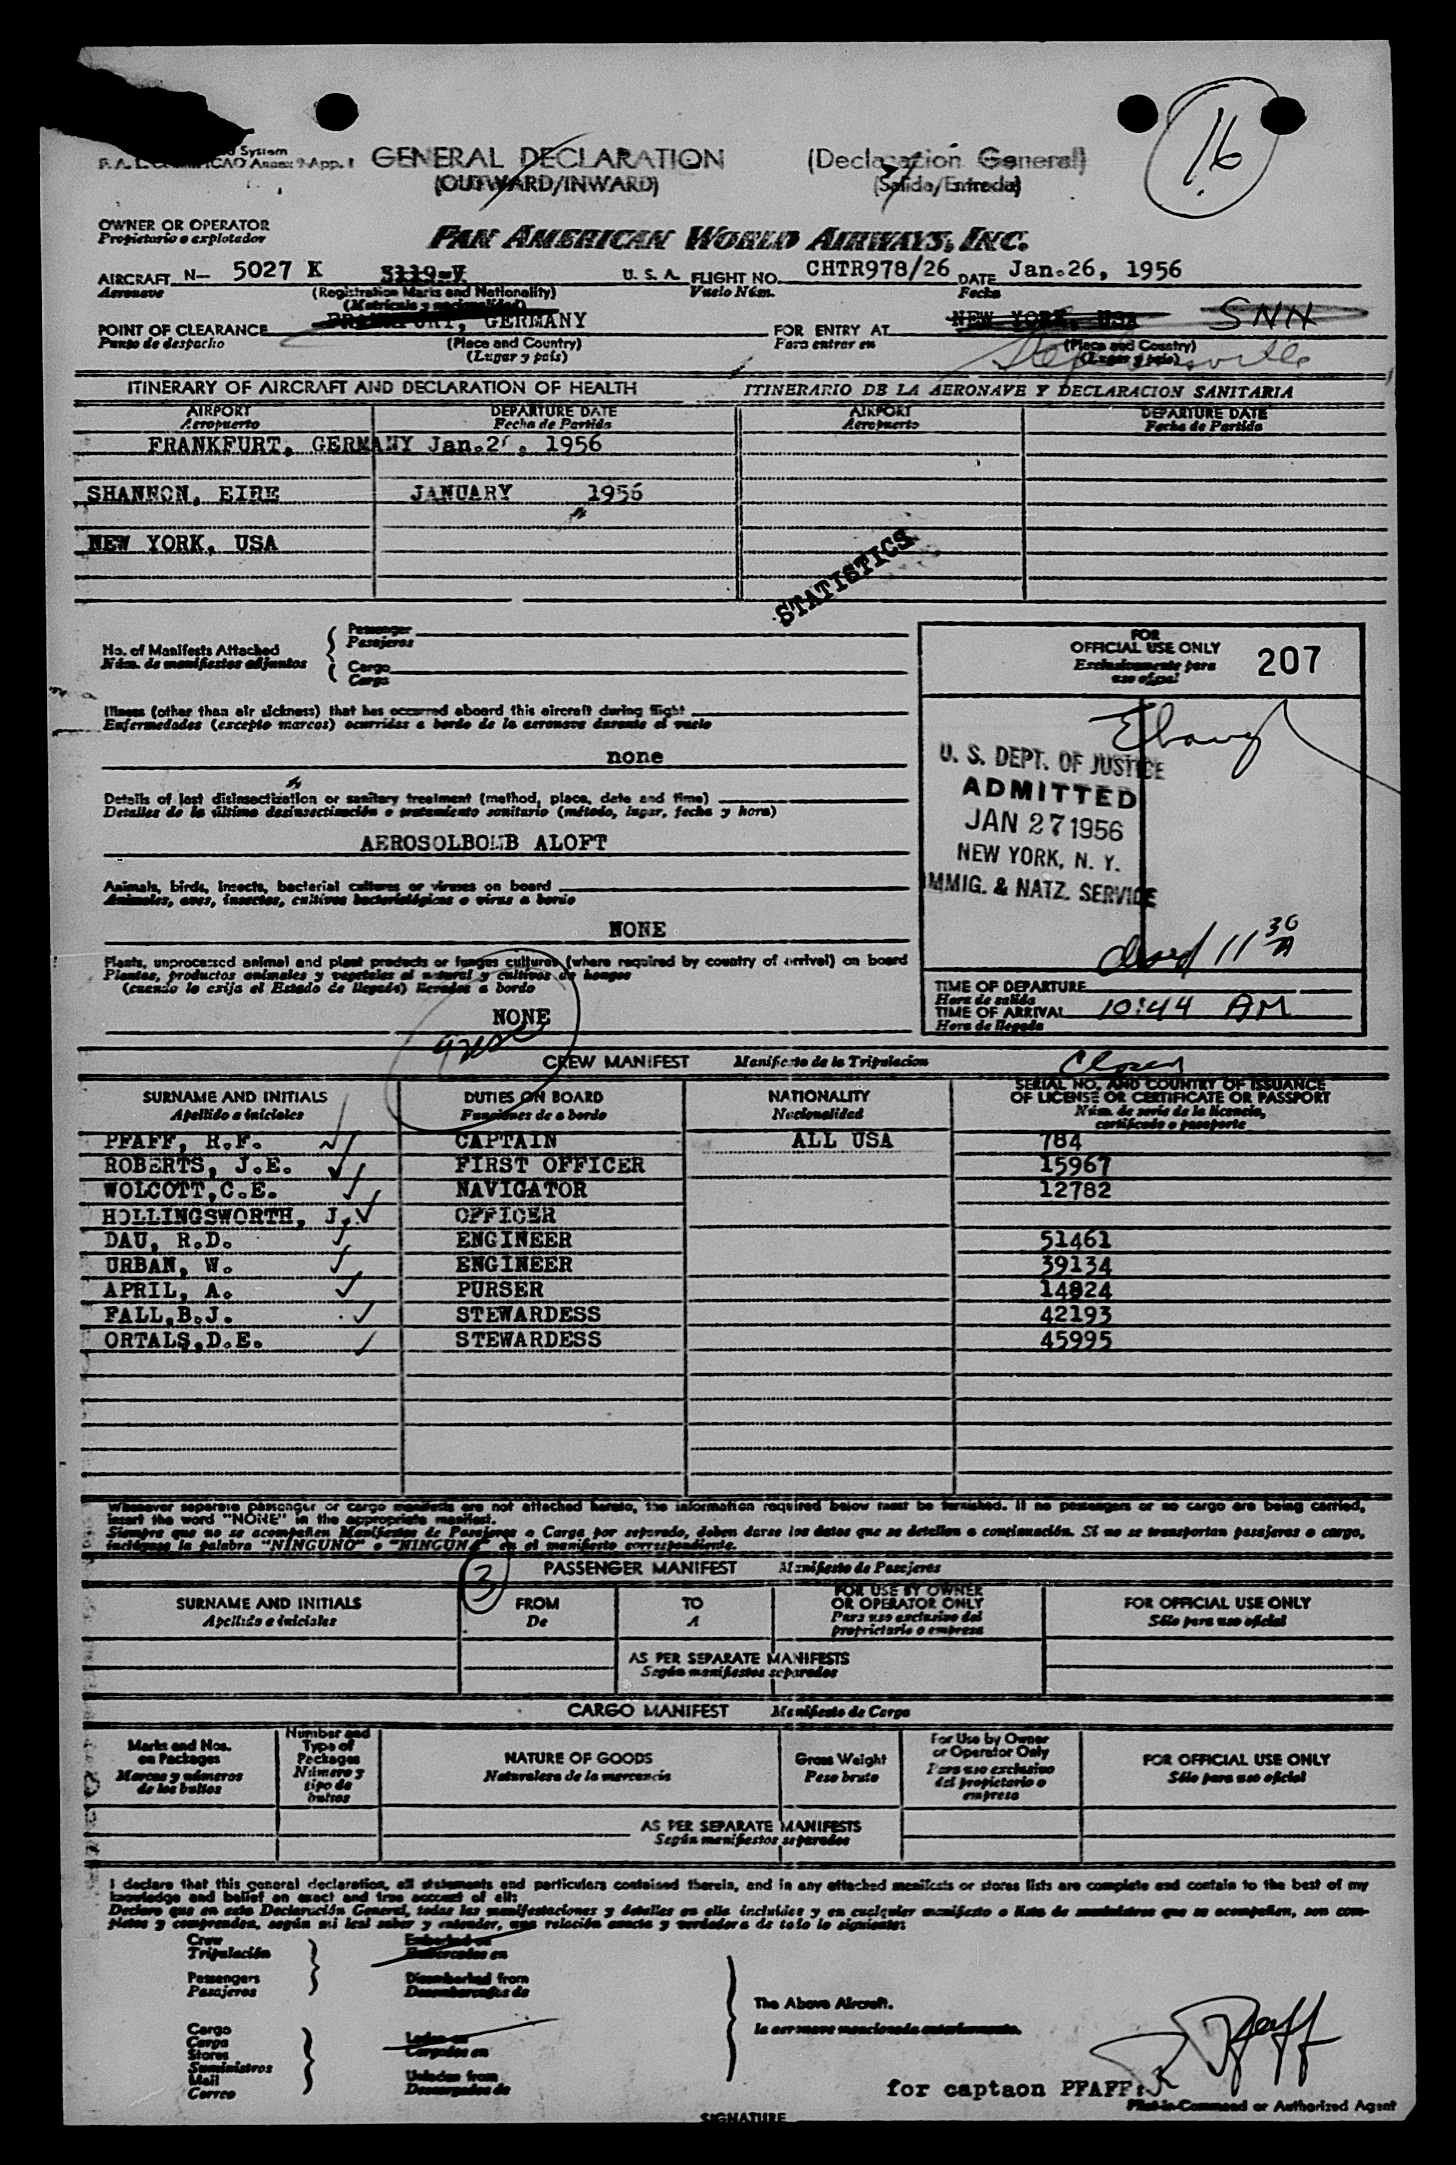 System
GENERAL DECLARATION (Declaracion General)
(OUTWARD/INWARD) (Salida/Entrada)
16
OWNER OR OPERATOR
Propietario o explotador
PAN AMERICAN WORLD AIRWAYS, INC.
AIRCRAFT N- 5027 K 3119-V U. S. A. FLIGHT NO. CHTR978/26 DATE Jan.26, 1956
Aeronave (Registration Marks and Nationality) Vuelo Núm. Fecha
(Matrícula y nacionalidad)
POINT OF CLEARANCE FRANKFURT, GERMANY FOR ENTRY AT NEW YORK, USA SNN
Punto de despacho (Place and Country) Para entrar en (Place and Country)
(Lugar y país) (Lugar y país) Stephenville
ITINERARY OF AIRCRAFT AND DECLARATION OF HEALTH ITINERARIO DE LA AERONAVE Y DECLARACION SANITARIA
AIRPORT DEPARTURE DATE AIRPORT DEPARTURE DATE
Aeropuerto Fecha de Partida Aeropuerto Fecha de Partida
FRANKFURT, GERMANY Jan.2 , 1956
SHANNON, EIRE JANUARY 1956
NEW YORK, USA
STATISTICS
No. of Manifests Attached Passenger
Núm. de manifiestos adjuntos Pasajeros
Cargo
Carga
FOR
OFFICIAL USE ONLY 207
Exclusivamente para
uso oficial
Illness (other than air sickness) that has occurred aboard this aircraft during flight
Enfermedades (excepto mareos) ocurridas a bordo de la aeronave durante el vuelo
none
Details of last disinsectization or sanitary treatment (method, place, date and time)
Detalles de la última desinsectización o tratamiento sanitario (método, lugar, fecha y hora)
AEROSOLBOMB ALOFT
Animals, birds, insects, bacterial cultures or viruses on board
Animales, aves, insectos, cultivos bacteriológicos o virus a bordo
NONE
Plants, unprocessed animal and plant products or fungus cultures (where required by country of arrival) on board
Plantas, productos animales y vegetales al natural y cultivos de hongos
(cuando lo exija el Estado de llegada) llevados a bordo
NONE
U. S. DEPT. OF JUSTICE
ADMITTED
JAN 27 1956
NEW YORK, N. Y.
IMMIG. & NATZ. SERVICE
closed 11 30 A
TIME OF DEPARTURE
Hora de salida
TIME OF ARRIVAL 10:44 AM
Hora de llegada
CREW MANIFEST Manifiesto de la Tripulacion
SURNAME AND INITIALS DUTIES ON BOARD NATIONALITY SERIAL NO. AND COUNTRY OF ISSUANCE
Apellido e iniciales Funciones de a bordo Nacionalidad OF LICENSE OR CERTIFICATE OR PASSPORT
Núm. de serie de la licencia,
certificado o pasaporte
PFAFF, R.F. CAPTAIN ALL USA 784
ROBERTS, J.E. FIRST OFFICER 15967
WOLCOTT,C.E. NAVIGATOR 12782
HOLLINGSWORTH, J. OFFICER
DAU, R.D. ENGINEER 51461
URBAN, W. ENGINEER 39134
APRIL, A. PURSER 14824
FALL,B.J. STEWARDESS 42193
ORTALS,D.E. STEWARDESS 45995
Whenever separate passenger or cargo manifests are not attached hereto, the information required below must be furnished. If no passengers or no cargo are being carried,
insert the word "NONE" in the appropriate manifest.
Siempre que no se acompañen Manifiestos de Pasajeros o Carga por separado, deben darse los datos que se detallan a continuación. Si no se transportan pasajeros o carga,
inclúyase la palabra "NINGUNO" o "NINGUNA" en el manifiesto correspondiente.
PASSENGER MANIFEST Manifiesto de Pasajeros
3
SURNAME AND INITIALS FROM TO FOR USE BY OWNER FOR OFFICIAL USE ONLY
Apellido e iniciales De A OR OPERATOR ONLY Sólo para uso oficial
Para uso exclusivo del
proprietario o empresa
AS PER SEPARATE MANIFESTS
Según manifiestos separados
CARGO MANIFEST Manifiesto de Carga
Marks and Nos. Number and NATURE OF GOODS Gross Weight For Use by Owner FOR OFFICIAL USE ONLY
on Packages Type of Naturaleza de la mercancía Peso bruto or Operator Only Sólo para uso oficial
Marcas y números Packages Para uso exclusivo
de los bultos Número y del propietario o
tipo de empresa
bultos
AS PER SEPARATE MANIFESTS
Según manifiestos separados
I declare that this general declaration, all statements and particulars contained therein, and in any attached manifests or stores lists are complete and contain to the best of my
knowledge and belief an exact and true account of all:
Declaro que en esta Declaración General, todas las manifestaciones y detalles en ella incluidos y en cualquier manifiesto o lista de suministros que se acompañen, son com-
pletos y comprenden, según mi leal saber y entender, una relación exacta y verdadera de todo lo siguiente:
Crew Embarked on
Tripulación Embarcados en
Passengers Disembarked from
Pasajeros Desembarcados de
The Above Aircraft.
la aeronave mencionada anteriormente.
Cargo Laden on
Carga Cargados en
Stores
Suministros
Mail Unladen from
Correo Descargados de
R Pfaff
for captaon PFAFF:
Pilot-in-Command or Authorized Agent
SIGNATURE